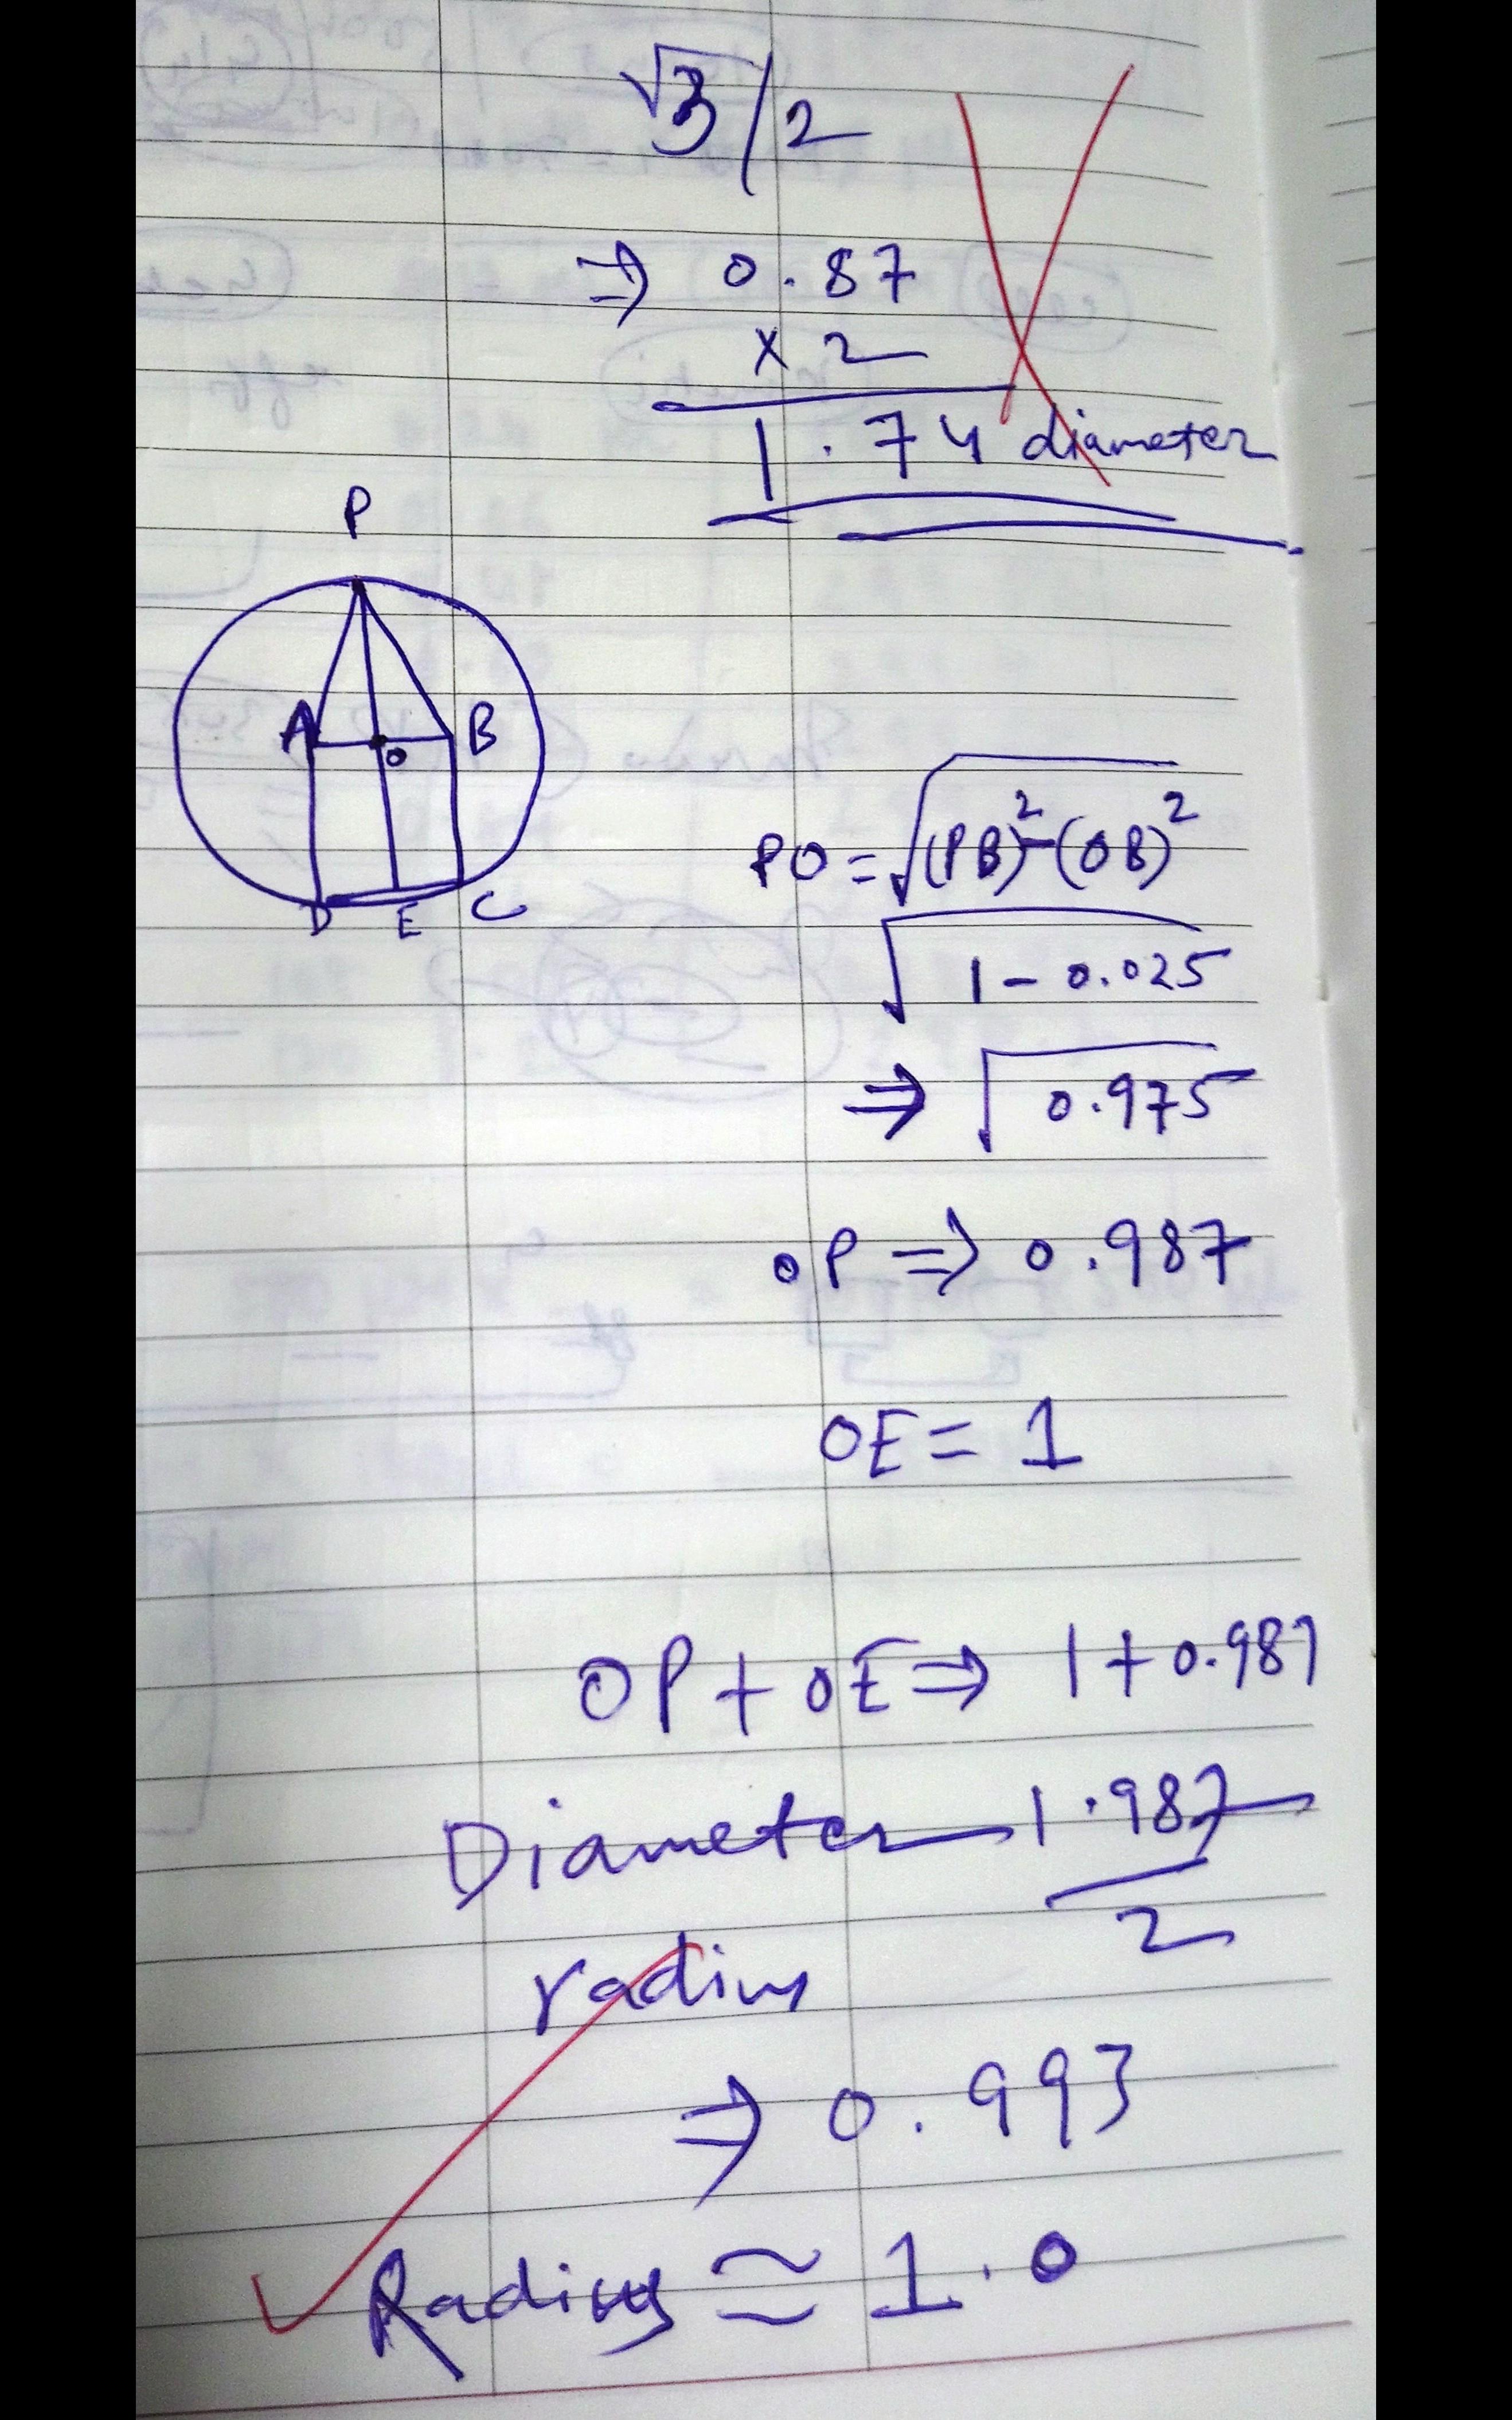 √3/2
⇒ 0.87
× 2
1.74 diameter
P
A B
o
D E C
PO = √(PB)² - (OB)²
√1 - 0.025
⇒ √0.975
OP ⇒ 0.987
OE = 1
OP + OE ⇒ 1 + 0.987
Diameter 1.987
2
radius
⇒ 0.993
Radius ≅ 1.0